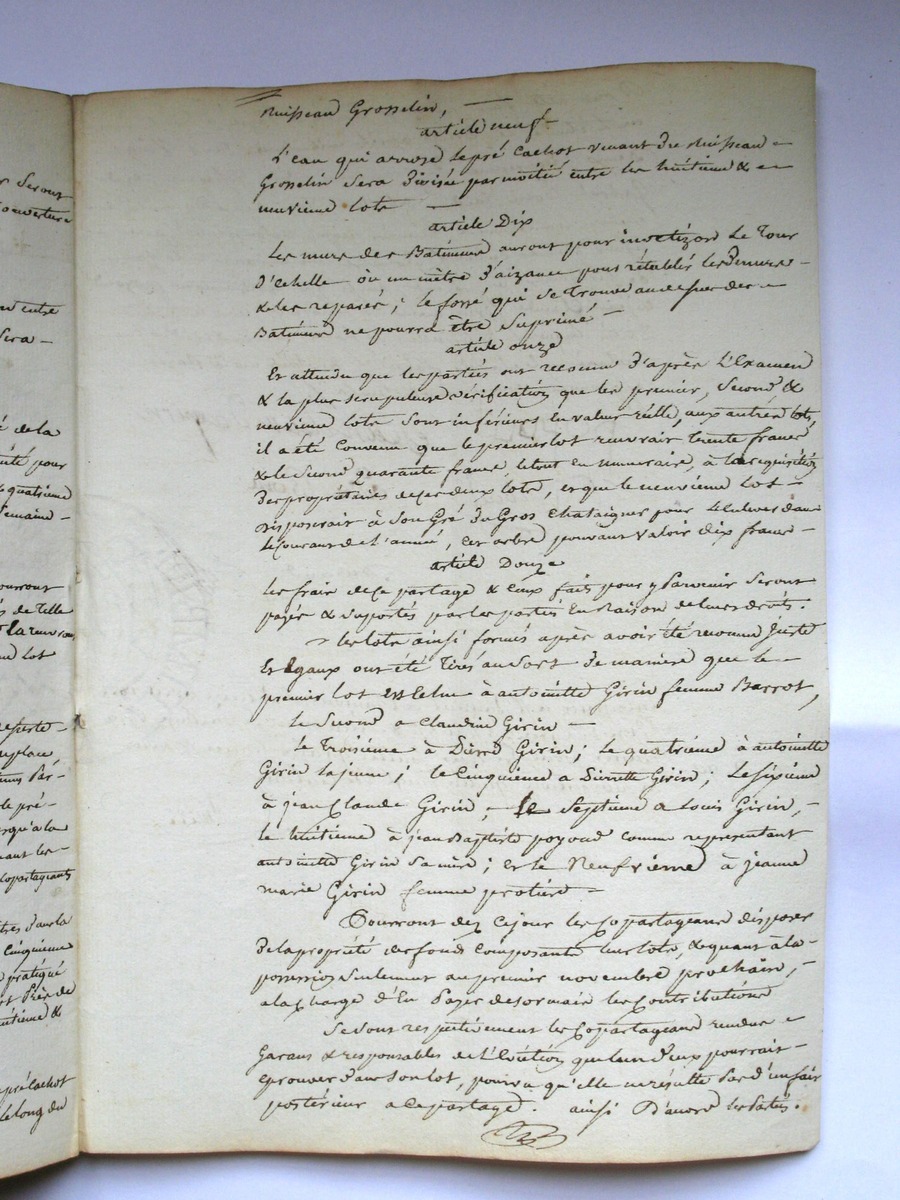 r Seront
ouverture
nd entre
Sera –
é de la
ité pour
quatrieme
Semaine –
ourront
s de Telle
nd Lot
reste –
replace,
le pré-
usqu'à la
nant les –
Copartageants
tres dans la
Cinquieme
pratiqué
Près de
uitieme &
pré Cachot
le long du
Ruisseau Grosselin, –
article neuf –
L'eau qui arrose le pré Cachot venant du Ruisseau –
Grosselin Sera Divisée par moitié entre les huitieme & –
neuvieme lots –
article Dix
Les murs des Batimens auront pour investizon le Tour
D'echelle ou un mètre D'aizance pour rétablir les Derniers –
& les reparés; le fossé qui se Trouve au dessus des –
Batimens ne pourra être Suprimé –
article onze
Et attendu que les parties ont reconnu D'après L'Examen
& la plus scrupuleuse vérification que les premier, Second &
neuvieme lots Sont inférieurs En valeur réelle, aux autres lots,
il a été Convenu que le premier lot recevrait trente francs
& le Second quarante francs, le tout en numeraire, à la requisition
Des propriétaires de ces deux lots, et que le neuvieme Lot –
Disposerait à Son Gré Du Gros Chataigner pour L'Enlever dans
le Courant de L'année, cet arbre pouvant valoir dix francs –
article Douze
Les frais de Ce partage & Ceux faits pour y Parvenir Seront
payés & suportés par les parties En Raison de leurs droits.
les lots ainsi formés après avoir été reconnus Juste
Et Egaux ont été Tirés au Sort De maniere que le –
premier Lot Est échu à antoinette Girin femme Barrot,
le Second a Claudine Girin –
le Troisième à Pierre Girin; le quatrième à antoinette
Girin la jeune; le Cinquieme a Pierrette Girin; Le Sixieme
à jean Claude Girin, – le Septieme a Louis Girin, –
le huitieme à jean Baptiste poyard comme representant
antoinette Girin Sa mère; et le Neufvieme à jeanne
marie Girin femme protière –
Pourront dez Ce jour les Copartageans disposer
De la propriété des fonds Composants leurs lots, & quant à la –
possession Seulement au premier novembre prochain, –
a la Charge d'En Payer desormais les Contributions
Se Sont respectivement les Copartageans rendus –
Garans & responsables de L'Eviction que l'un d'eux pourrait –
eprouver dans Son lot, pourvu qu'elle ne résulte Pas d'un fait
postérieur a ce partage. ainsi D'accord les Parties.